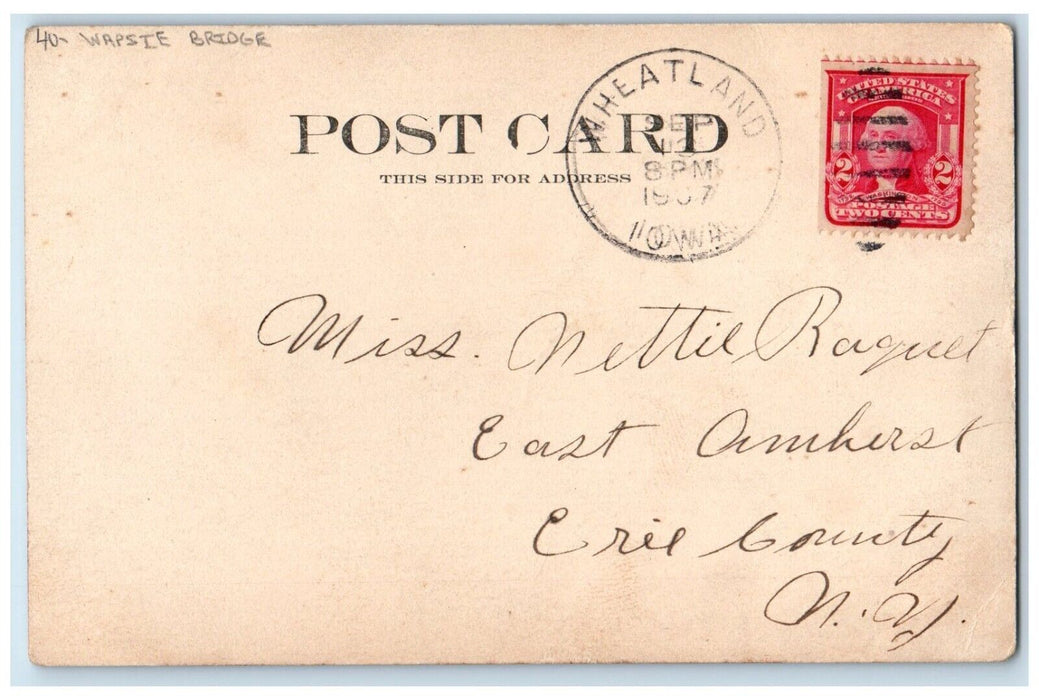 40- WAPSIE BRIDGE
POST CARD
THIS SIDE FOR ADDRESS
WHEATLAND
SEP
13
8 PM
1907
IOWA
UNITED STATES
OF AMERICA
2 2
WASHINGTON
POSTAGE
TWO CENTS
Miss. Nettie Raquet
East Amherst
Erie County
N.Y.